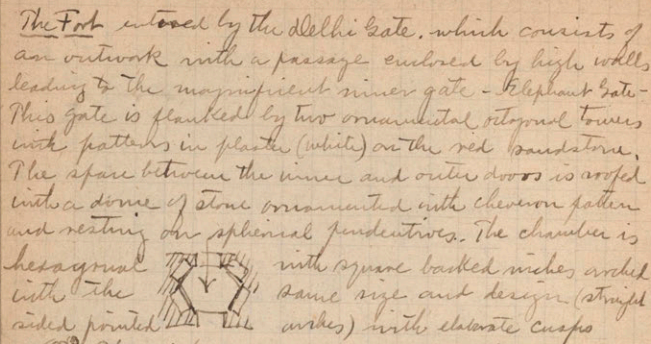 The Fort entered by the Delhi Gate. which consists of
an outwork with a passage enclosed by high walls
leading to the magnificent inner gate - Elephant Gate -
This gate is flanked by two ornamental octagonal towers
with patterns in plaster (white) on the red sandstone.
The space between the inner and outer doors is roofed
with a dome of stone ornamented with cheveron pattern
and resting on spherical pendentives. The chamber is
hexagonal with square backed niches arched
with the same size and design (straight
sided pointed arches) with elaborate cusps